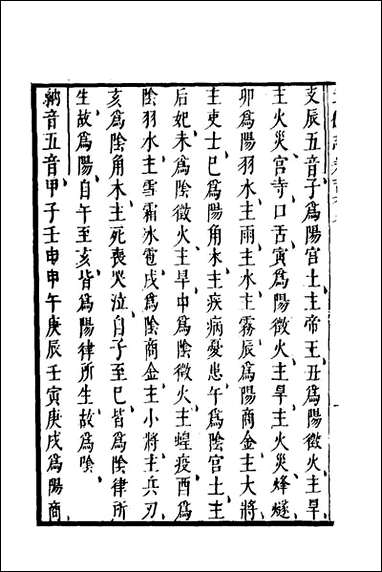 支辰五音子爲陽宮土主帝王丑爲陽徵火主旱
主火災宮寺口舌寅爲陽徵火主旱主火災烽燧
卯爲陽羽水主雨主水主霧辰爲陽商金主大將
主吏士巳爲陽角木主疾病憂患午爲陰宮土主
后妃未爲陰徵火主旱申爲陰徵火主蝗疫酉爲
陰羽水主雪霜冰雹戌爲陰商金主小將主兵刃
亥爲陰角木主死喪哭泣自子至巳皆爲陰律所
生故爲陽自午至亥皆爲陽律所生故爲陰
納音五音甲子壬申甲午庚辰壬寅庚戌爲陽商